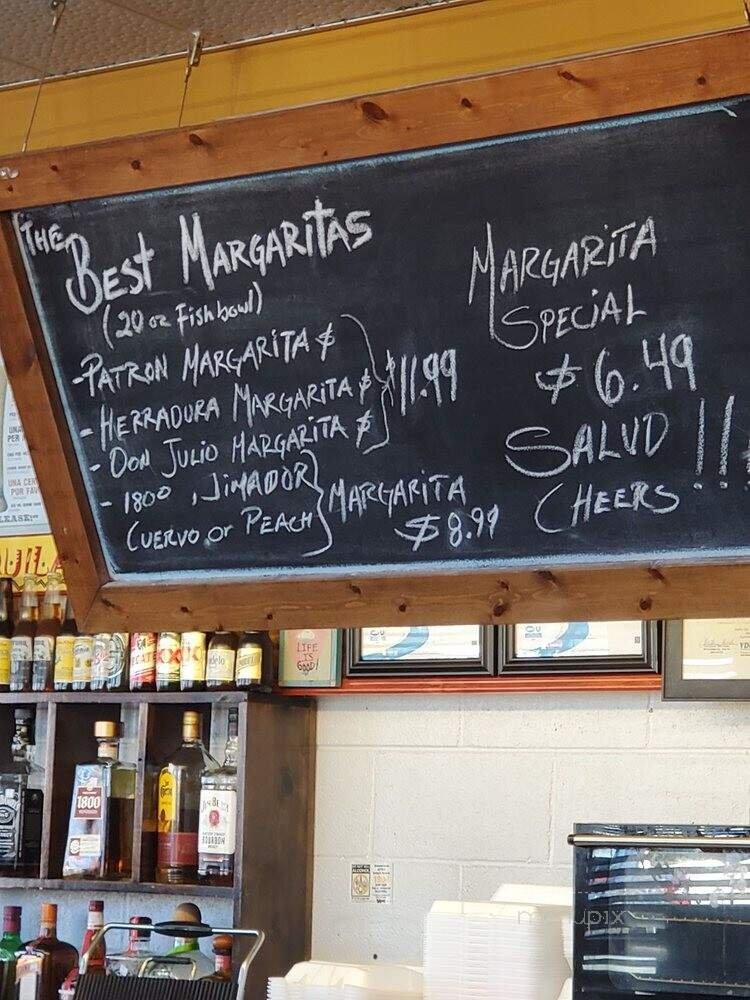 THE
BEST MARGARITAS
(20 oz Fishbowl)
-PATRON MARGARITA $
- HERRADURA MARGARITA $
- DON JULIO MARGARITA $
$11.99
- 1800 , JIMADOR
CUERVO or PEACH
MARGARITA
$8.99
MARGARITA
SPECIAL
$6.49
SALUD !!
CHEERS
LIFE
IS
GOOD!
1800
JIM BEAM
BOURBON
UNA
PER
UNA CER
POR FAV
LEASE!
XX